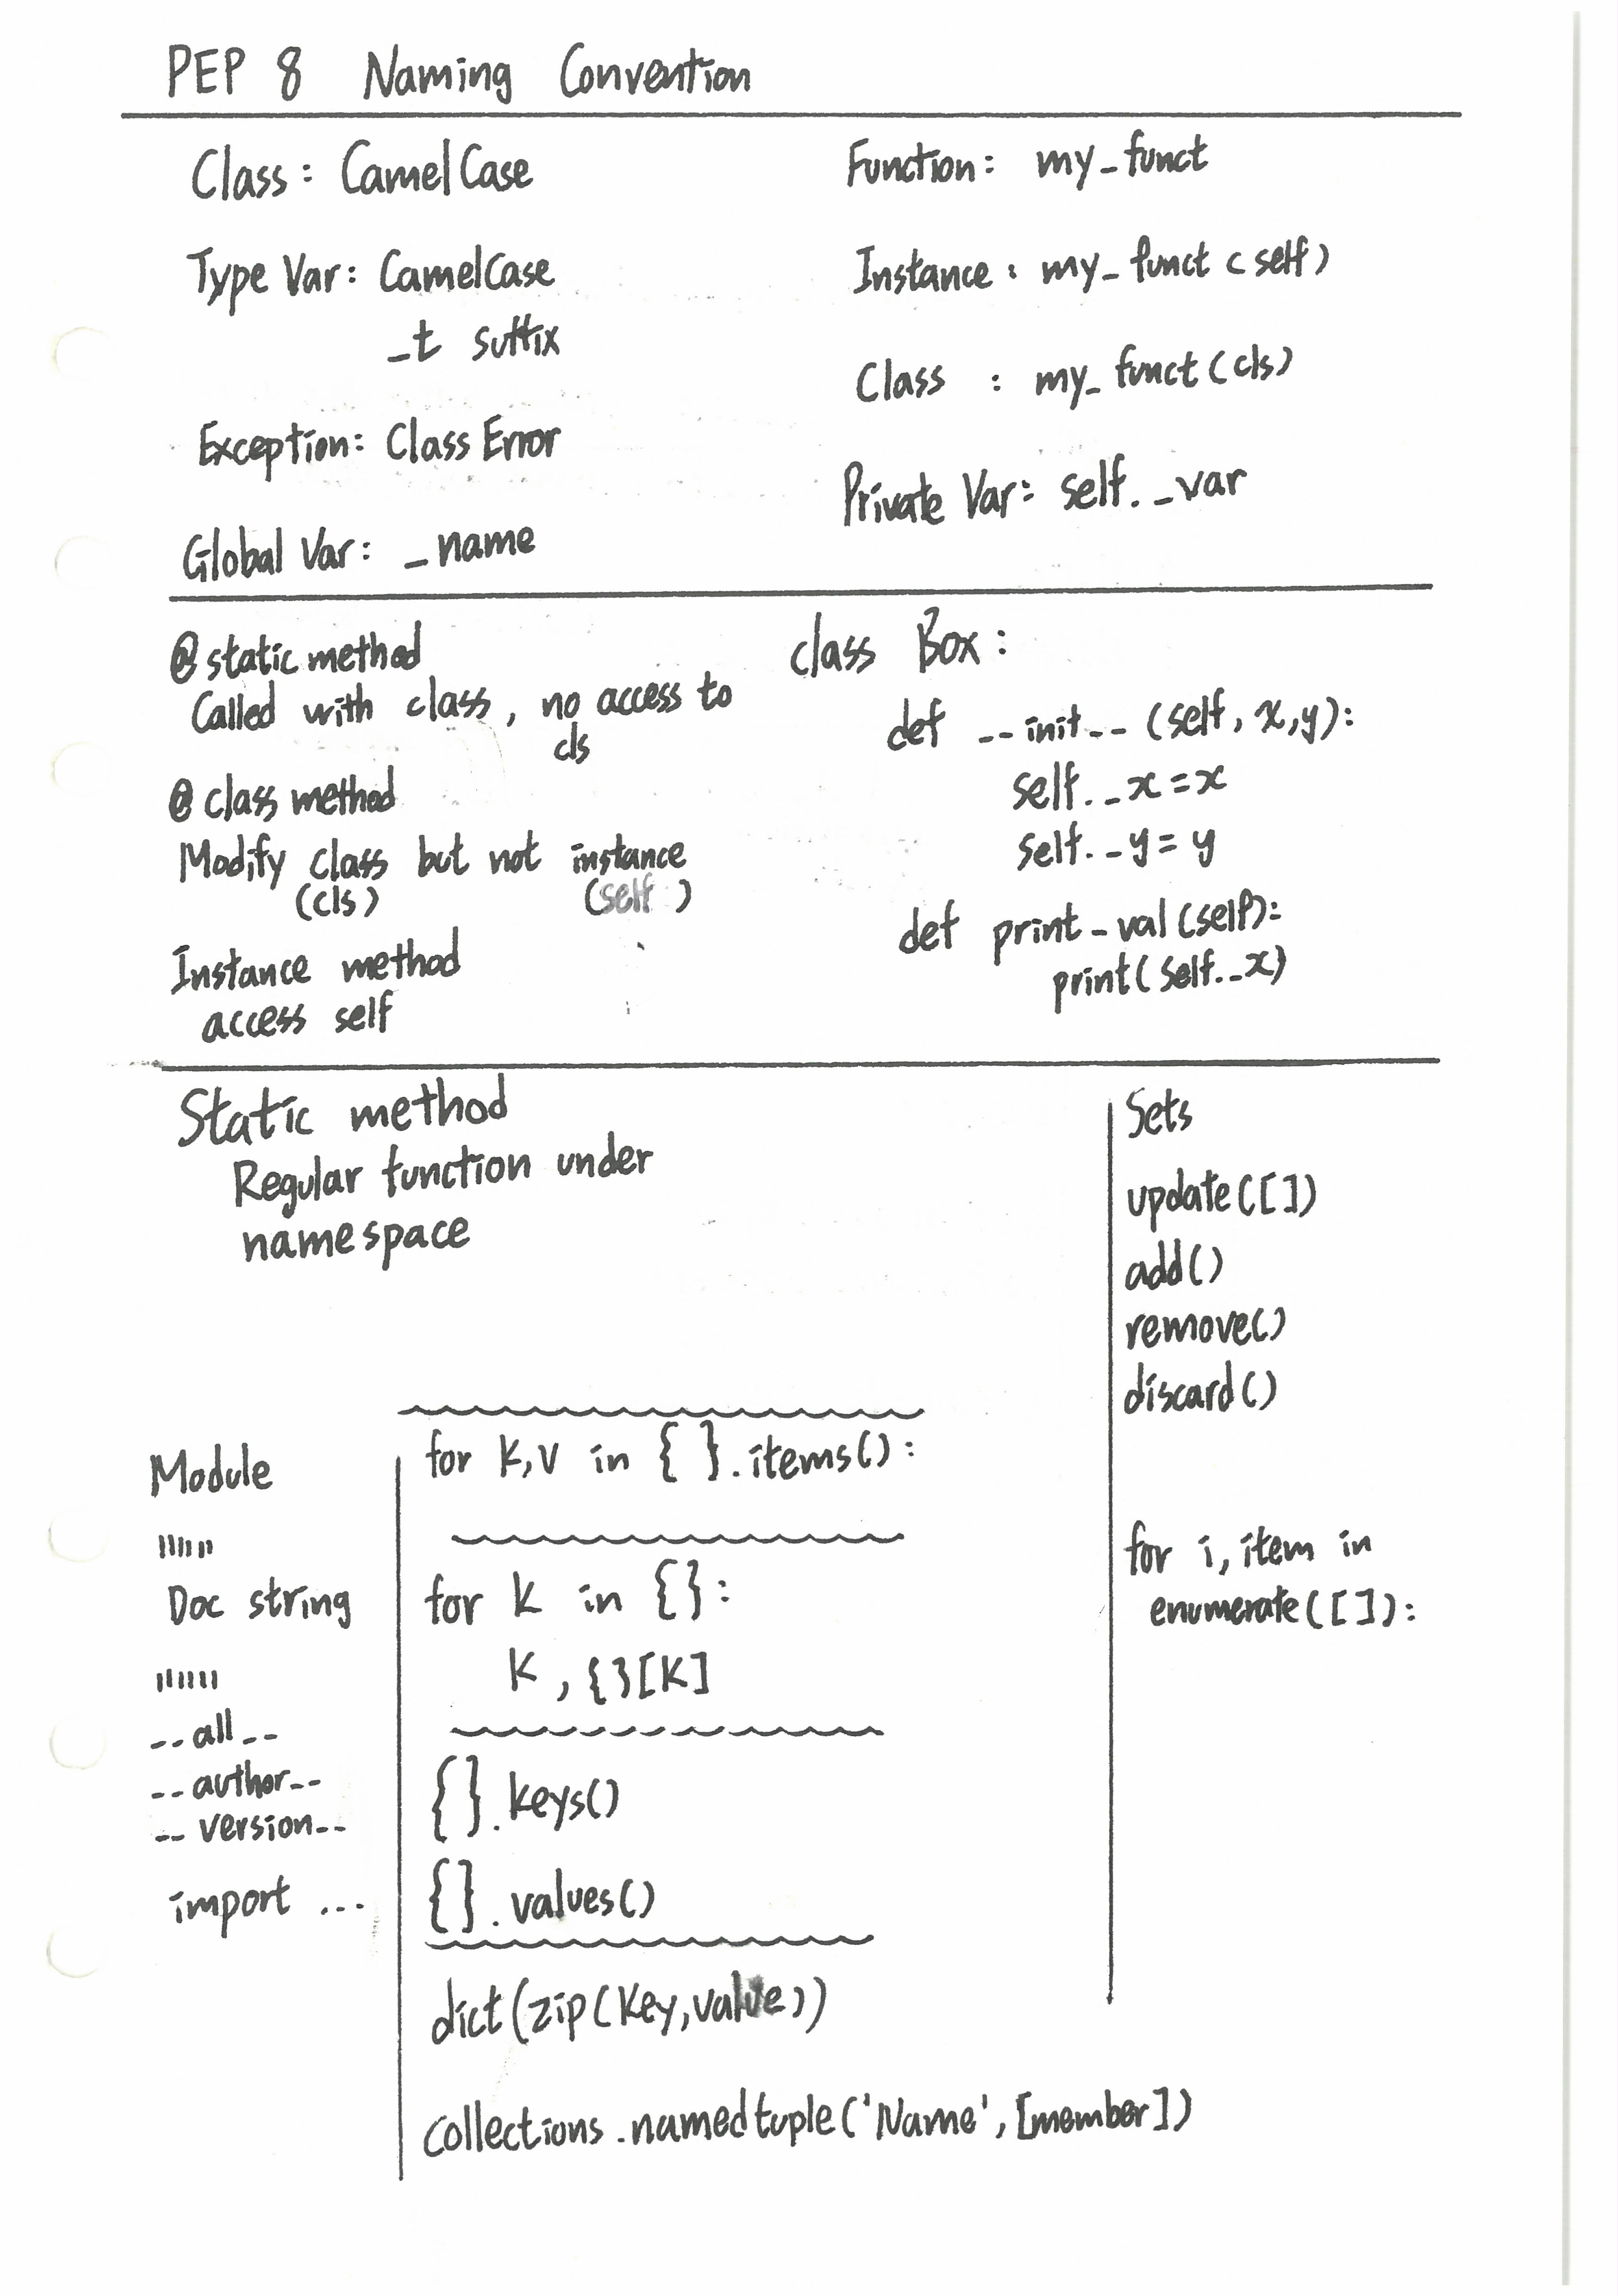 PEP 8 Naming Convention
Class: CamelCase
Type Var: CamelCase
_t suffix
Exception: Class Error
Global Var: _name
Function: my_funct
Instance: my_funct(self)
Class : my_funct(cls)
Private Var: self._var
@staticmethod
Called with class, no access to
cls
@classmethod
Modify class but not instance
(cls) (self)
Instance method
access self
class Box:
def __init__(self, x,y):
self._x=x
self._y=y
def print_val(self):
print(self._x)
Static method
Regular function under
namespace
Sets
update([])
add()
remove()
discard()
for i, item in
enumerate([]):
Module
""""""
Doc string
""""""
__all__
__author__
__version__
import ...
for k,v in { }.items():
for k in {}:
k, {}[k]
{}.keys()
{}.values()
dict(zip(key,value))
collections.namedtuple('Name',[member])